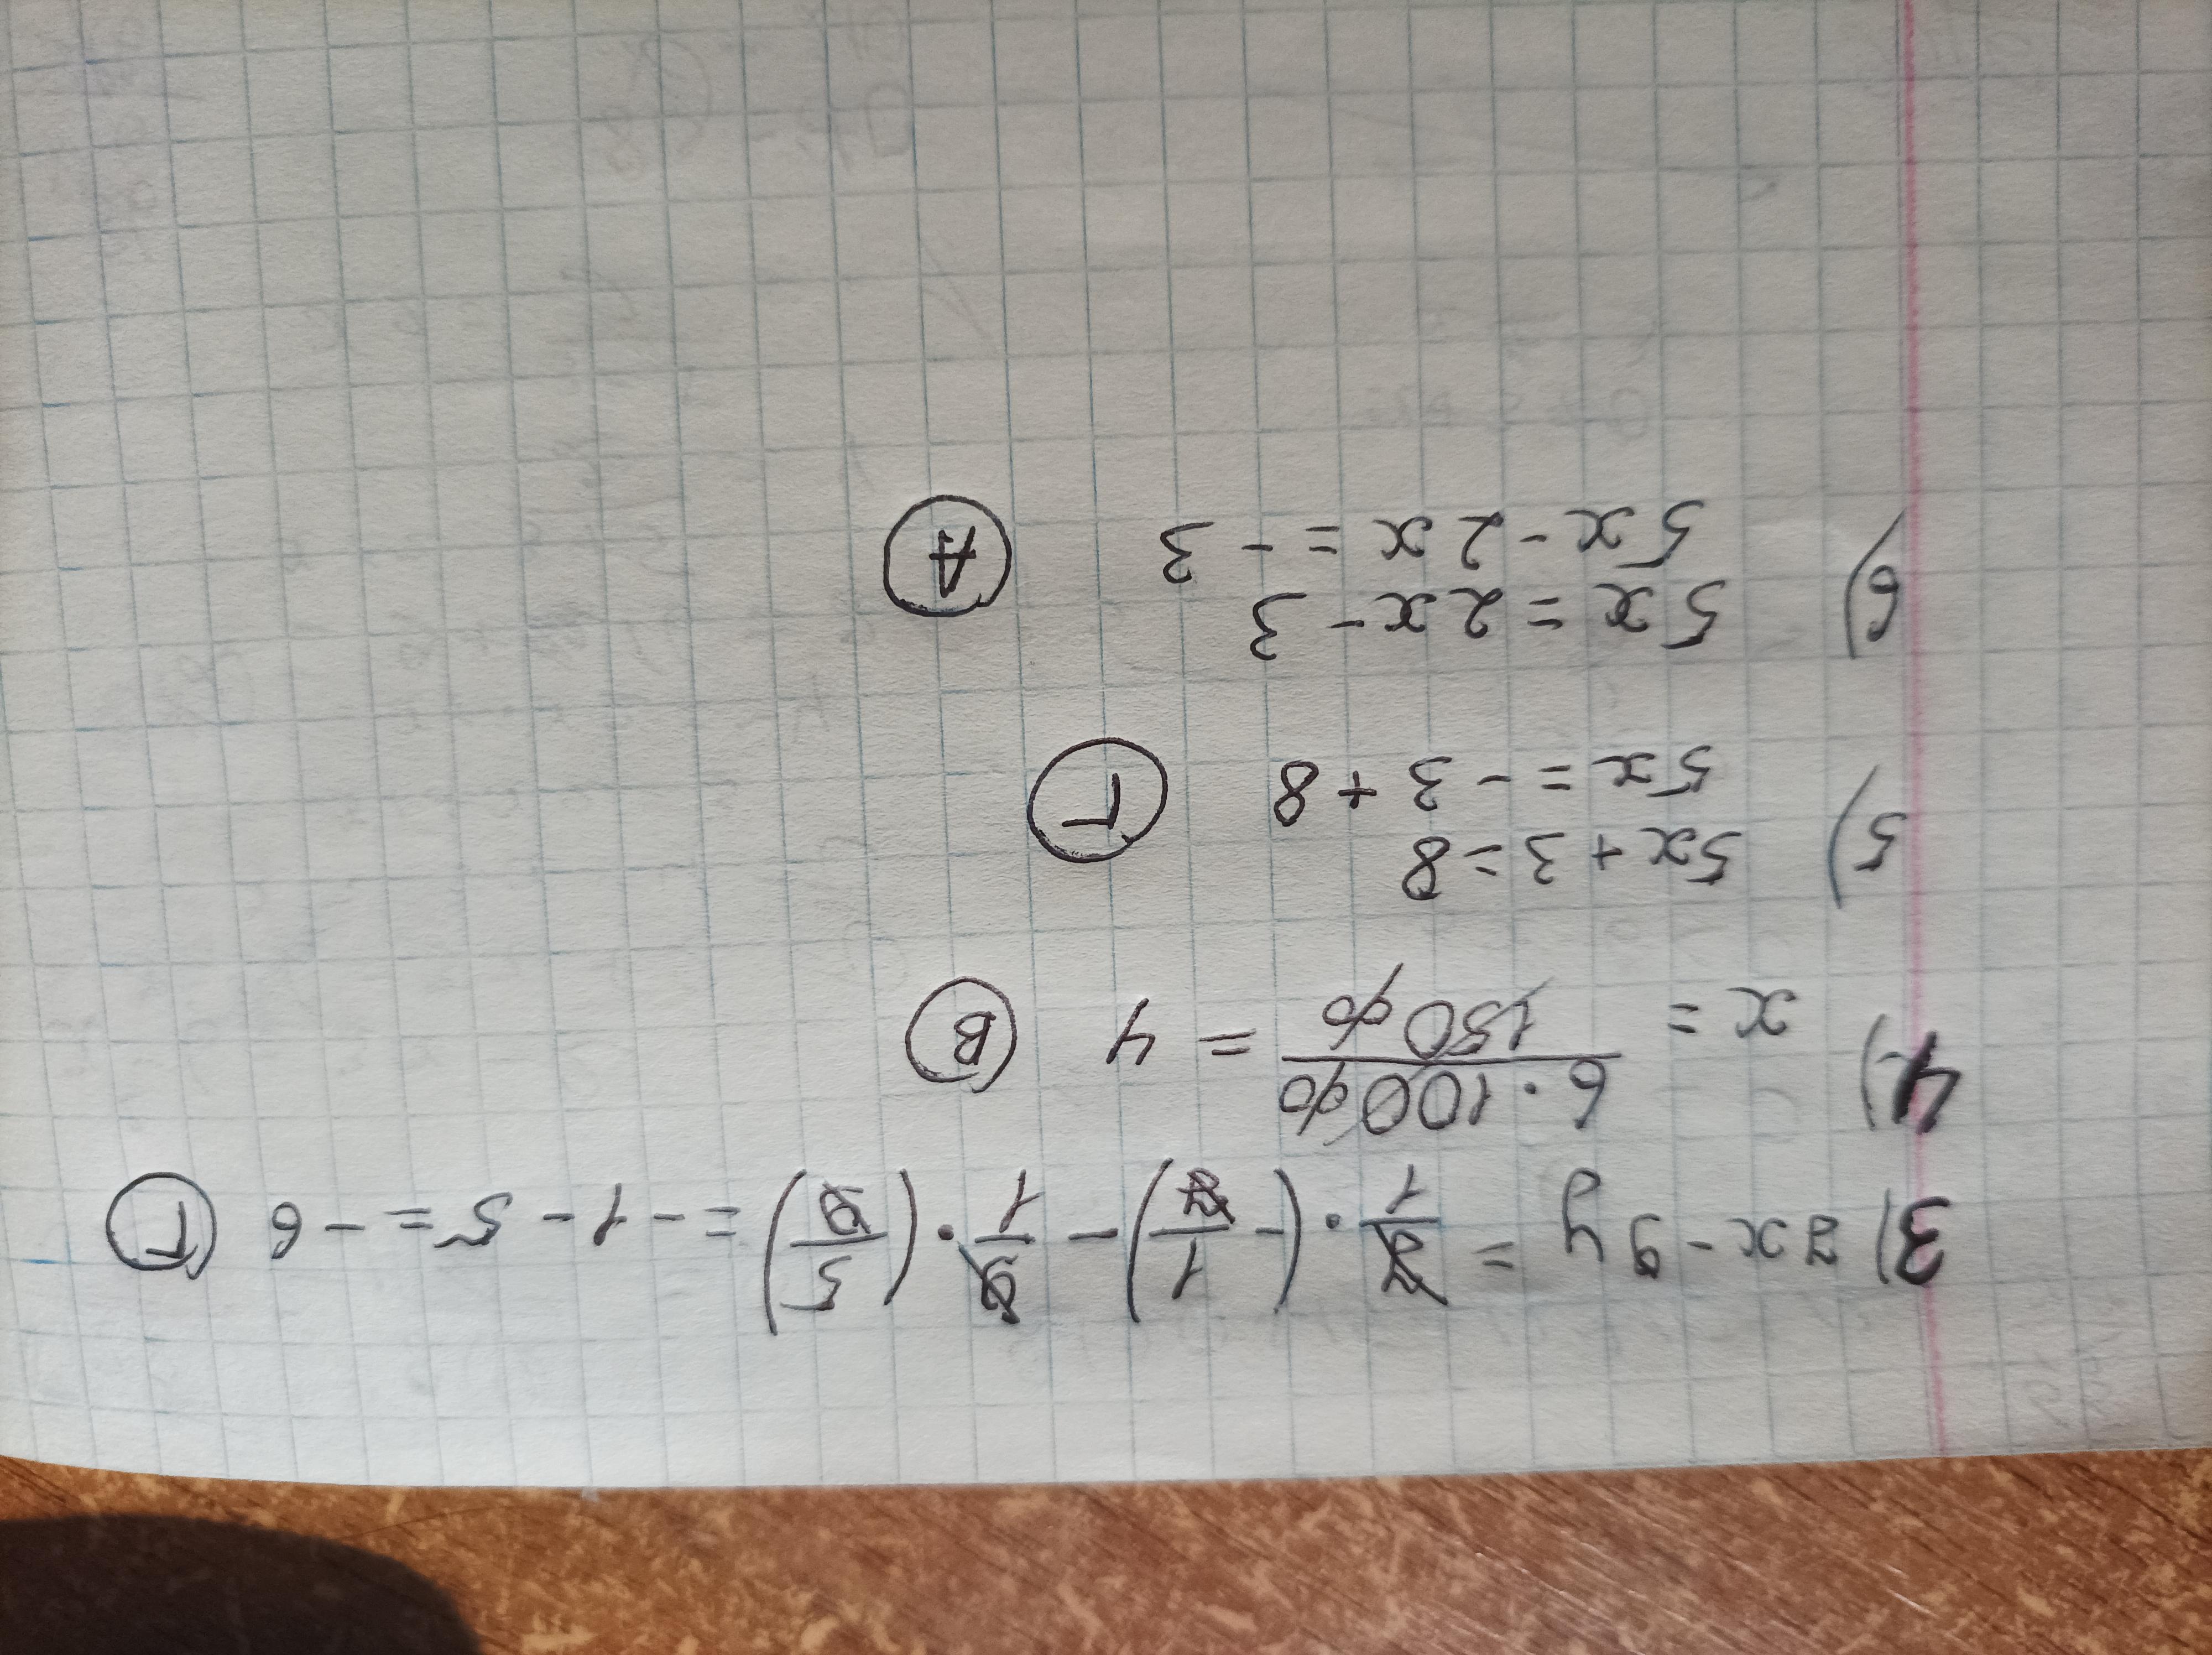 3) 7x - 9y = 7/1 · (- 1/7) - 9/1 · (5/9) = - 1 - 5 = - 6 Г
4) x = 6 · 100% / 150% = 4 В
5) 5x + 3 = 8
5x = - 3 + 8 Г
6) 5x = 2x - 3
5x - 2x = - 3 А